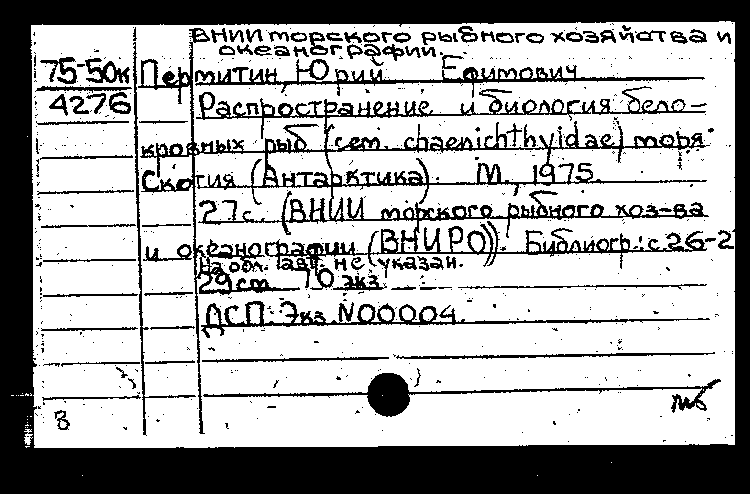 ВНИИ морского рыбного хозяйства и
океанографии.
75-50к Пермитин, Юрий Ефимович
4276 Распространение и биология бело-
кровных рыб (сем. chaenichthyidae) моря
Скотия (Антарктика). М., 1975.
27с. (ВНИИ морского рыбного хоз-ва
и океанографии (ВНИРО)). Библиогр.: с.26-2
На обл. авт. не указан.
29см 70 экз.
ДСП. Экз. N00004.
В